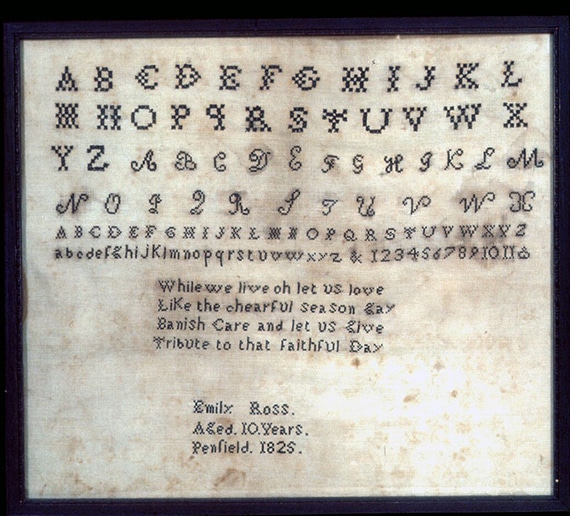 A B C D E F G H I J K L
M N O P Q R S T U V W X
Y Z A B C D E F G H I K L M
N O P Q R S T U V W X
A B C D E F G H I J K L M N O P Q R S T U V W X Y Z
a b c d e f g h i j k l m n o p q r s t u v w x y z & 1 2 3 4 5 6 7 8 9 10 11
While we live oh let us love
Like the chearful season Gay
Banish Care and let us Give
Tribute to that faithful Day
Emily Ross.
Aged. 10. Years.
Penfield. 1825.